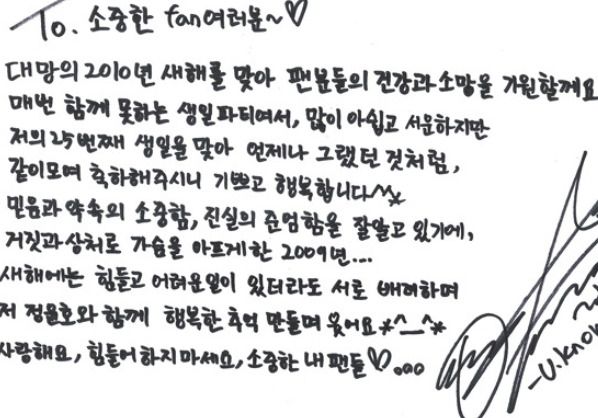 To. 소중한 fan여러분~♡
대망의 2010년 새해를 맞아 팬분들의 건강과 소망을 기원할께요
매번 함께 못하는 생일파티여서, 많이 아쉽고 서운하지만
저의 25번째 생일을 맞아 언제나 그랬던 것처럼,
같이모여 축하해주시니 기쁘고 행복합니다^^*
믿음과 약속의 소중함, 진실의 준엄함을 잘알고 있기에,
거짓과 상처로 가슴을 아프게한 2009년...
새해에는 힘들고 어려운일이 있더라도 서로 배려하며
저 정윤호와 함께 행복한 추억 만들며 웃어요*^__^*
사랑해요, 힘들어하지마세요, 소중한 내 팬들♡...
-U.know